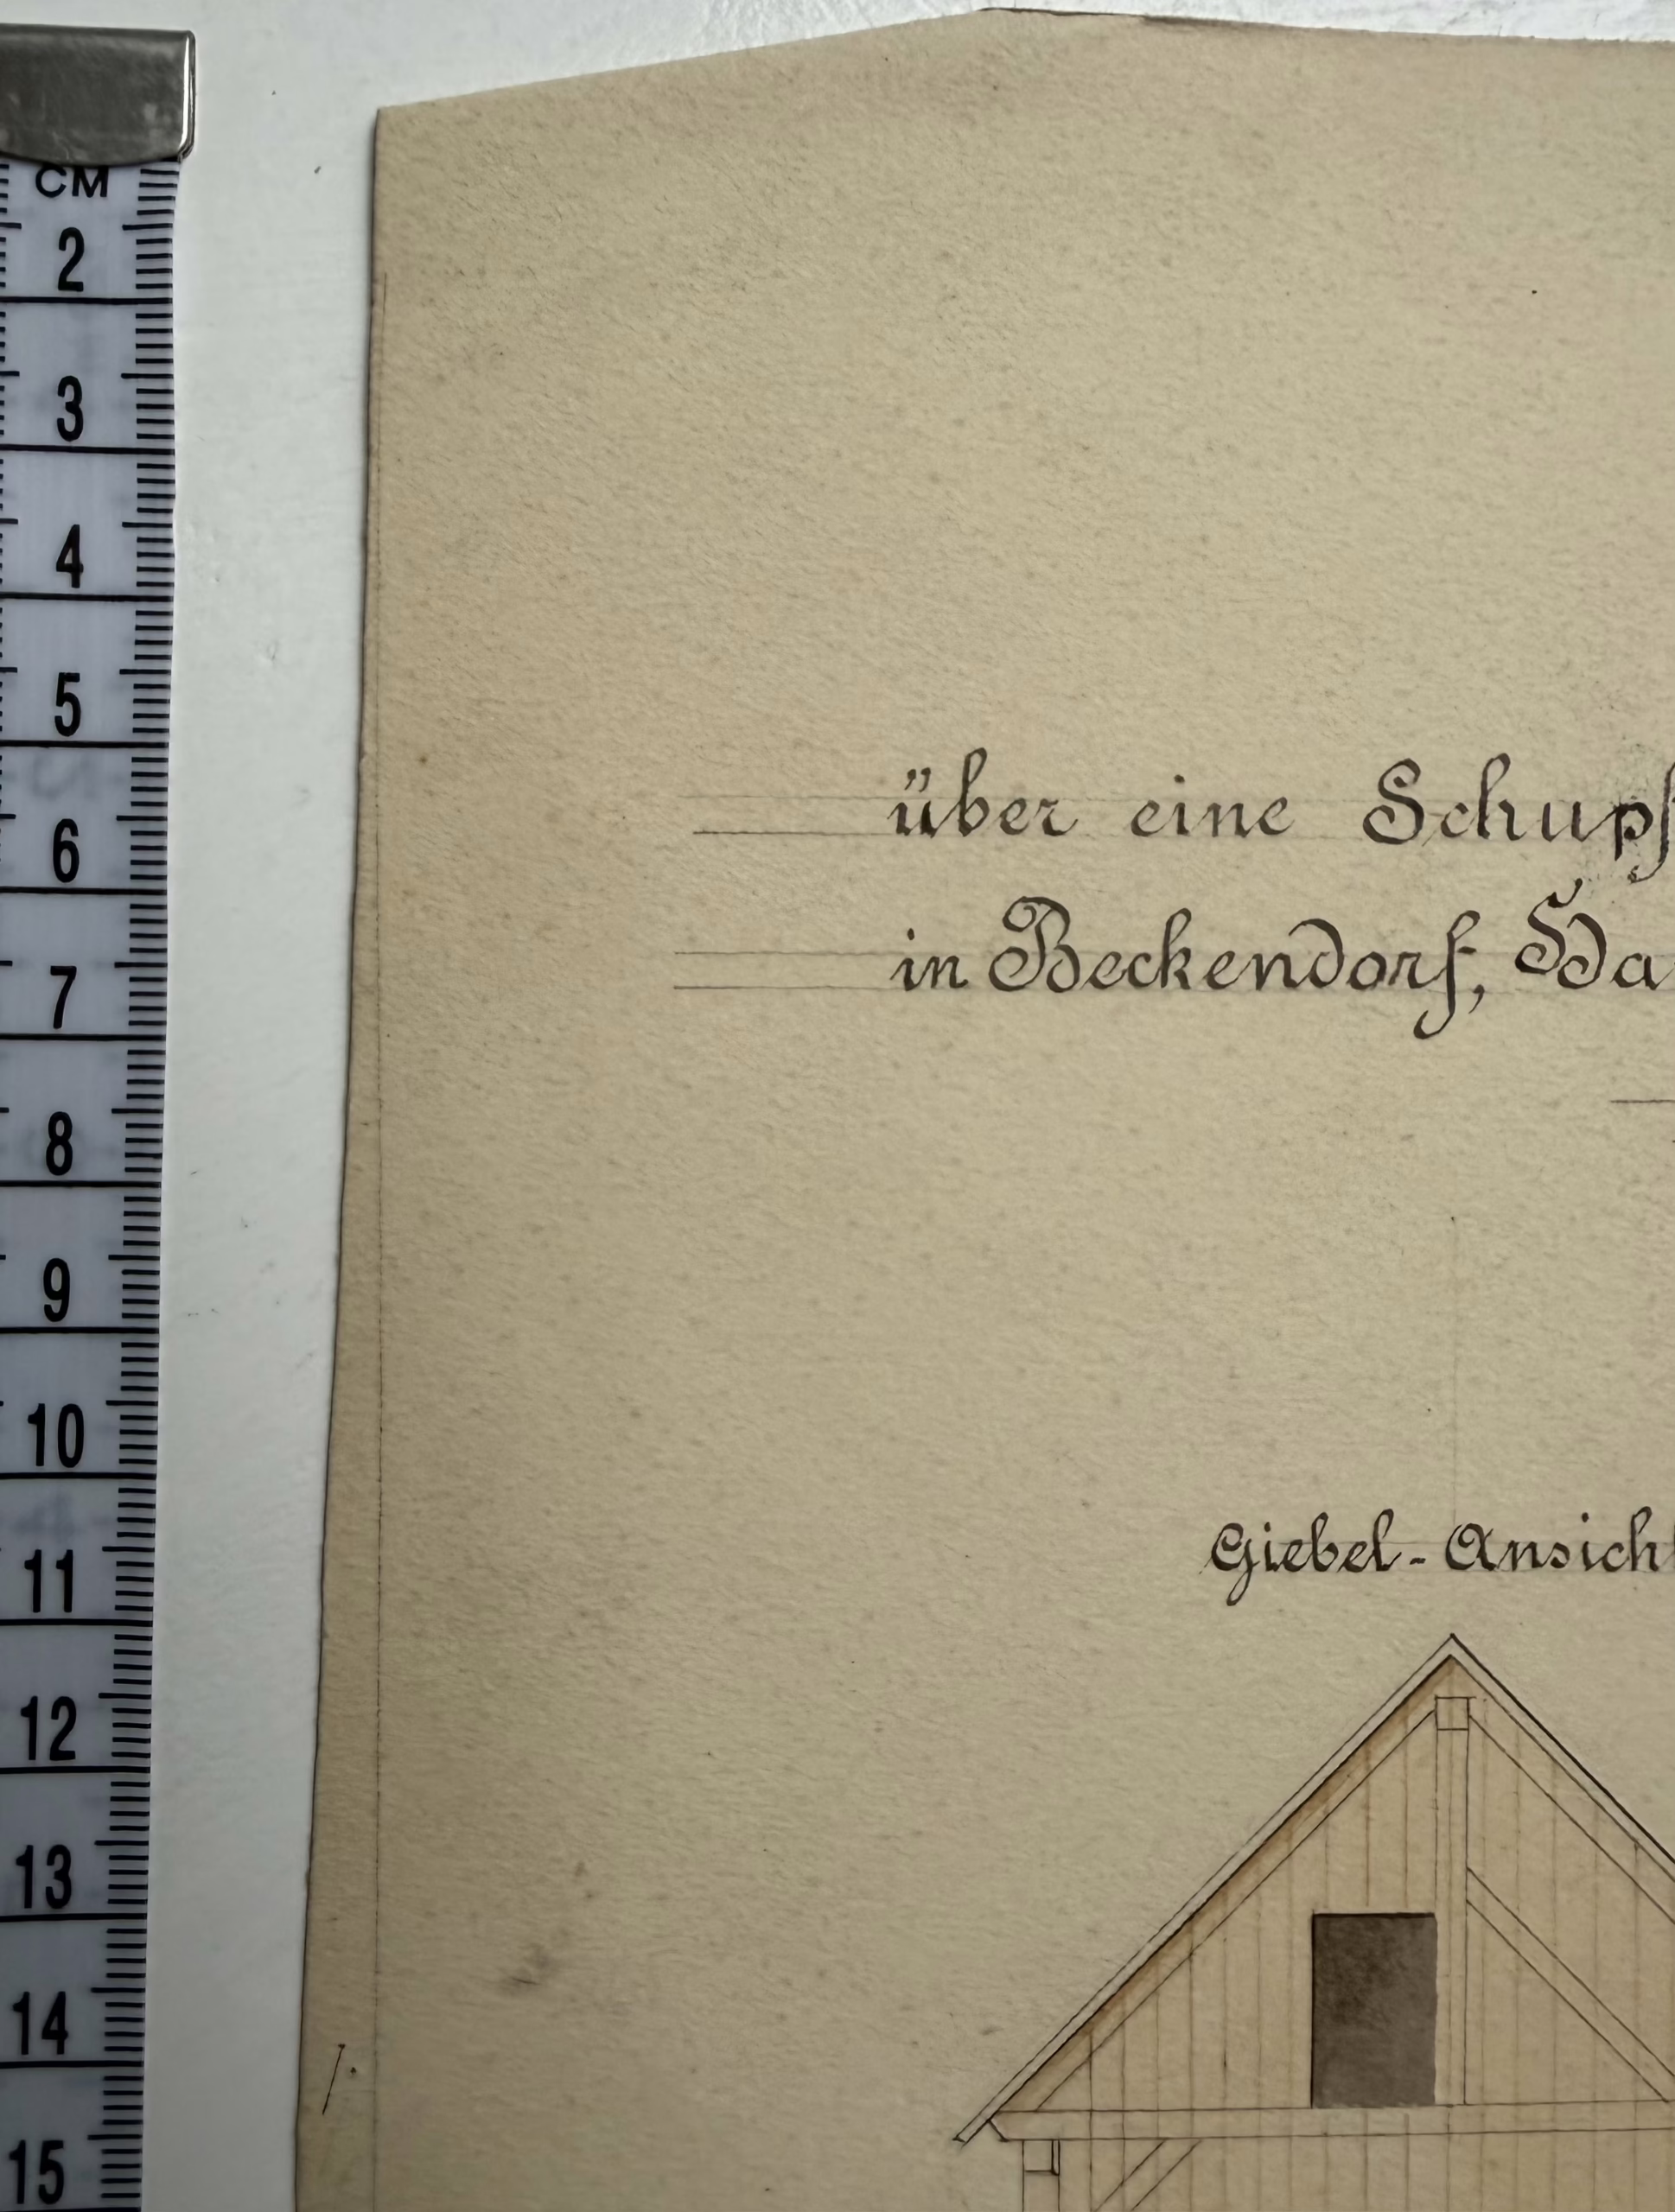 CM
2
3
4
5
6
7
8
9
10
11
12
13
14
15
über eine Schupf
in Beckendorf, Ha
Giebel-Ansicht
1.